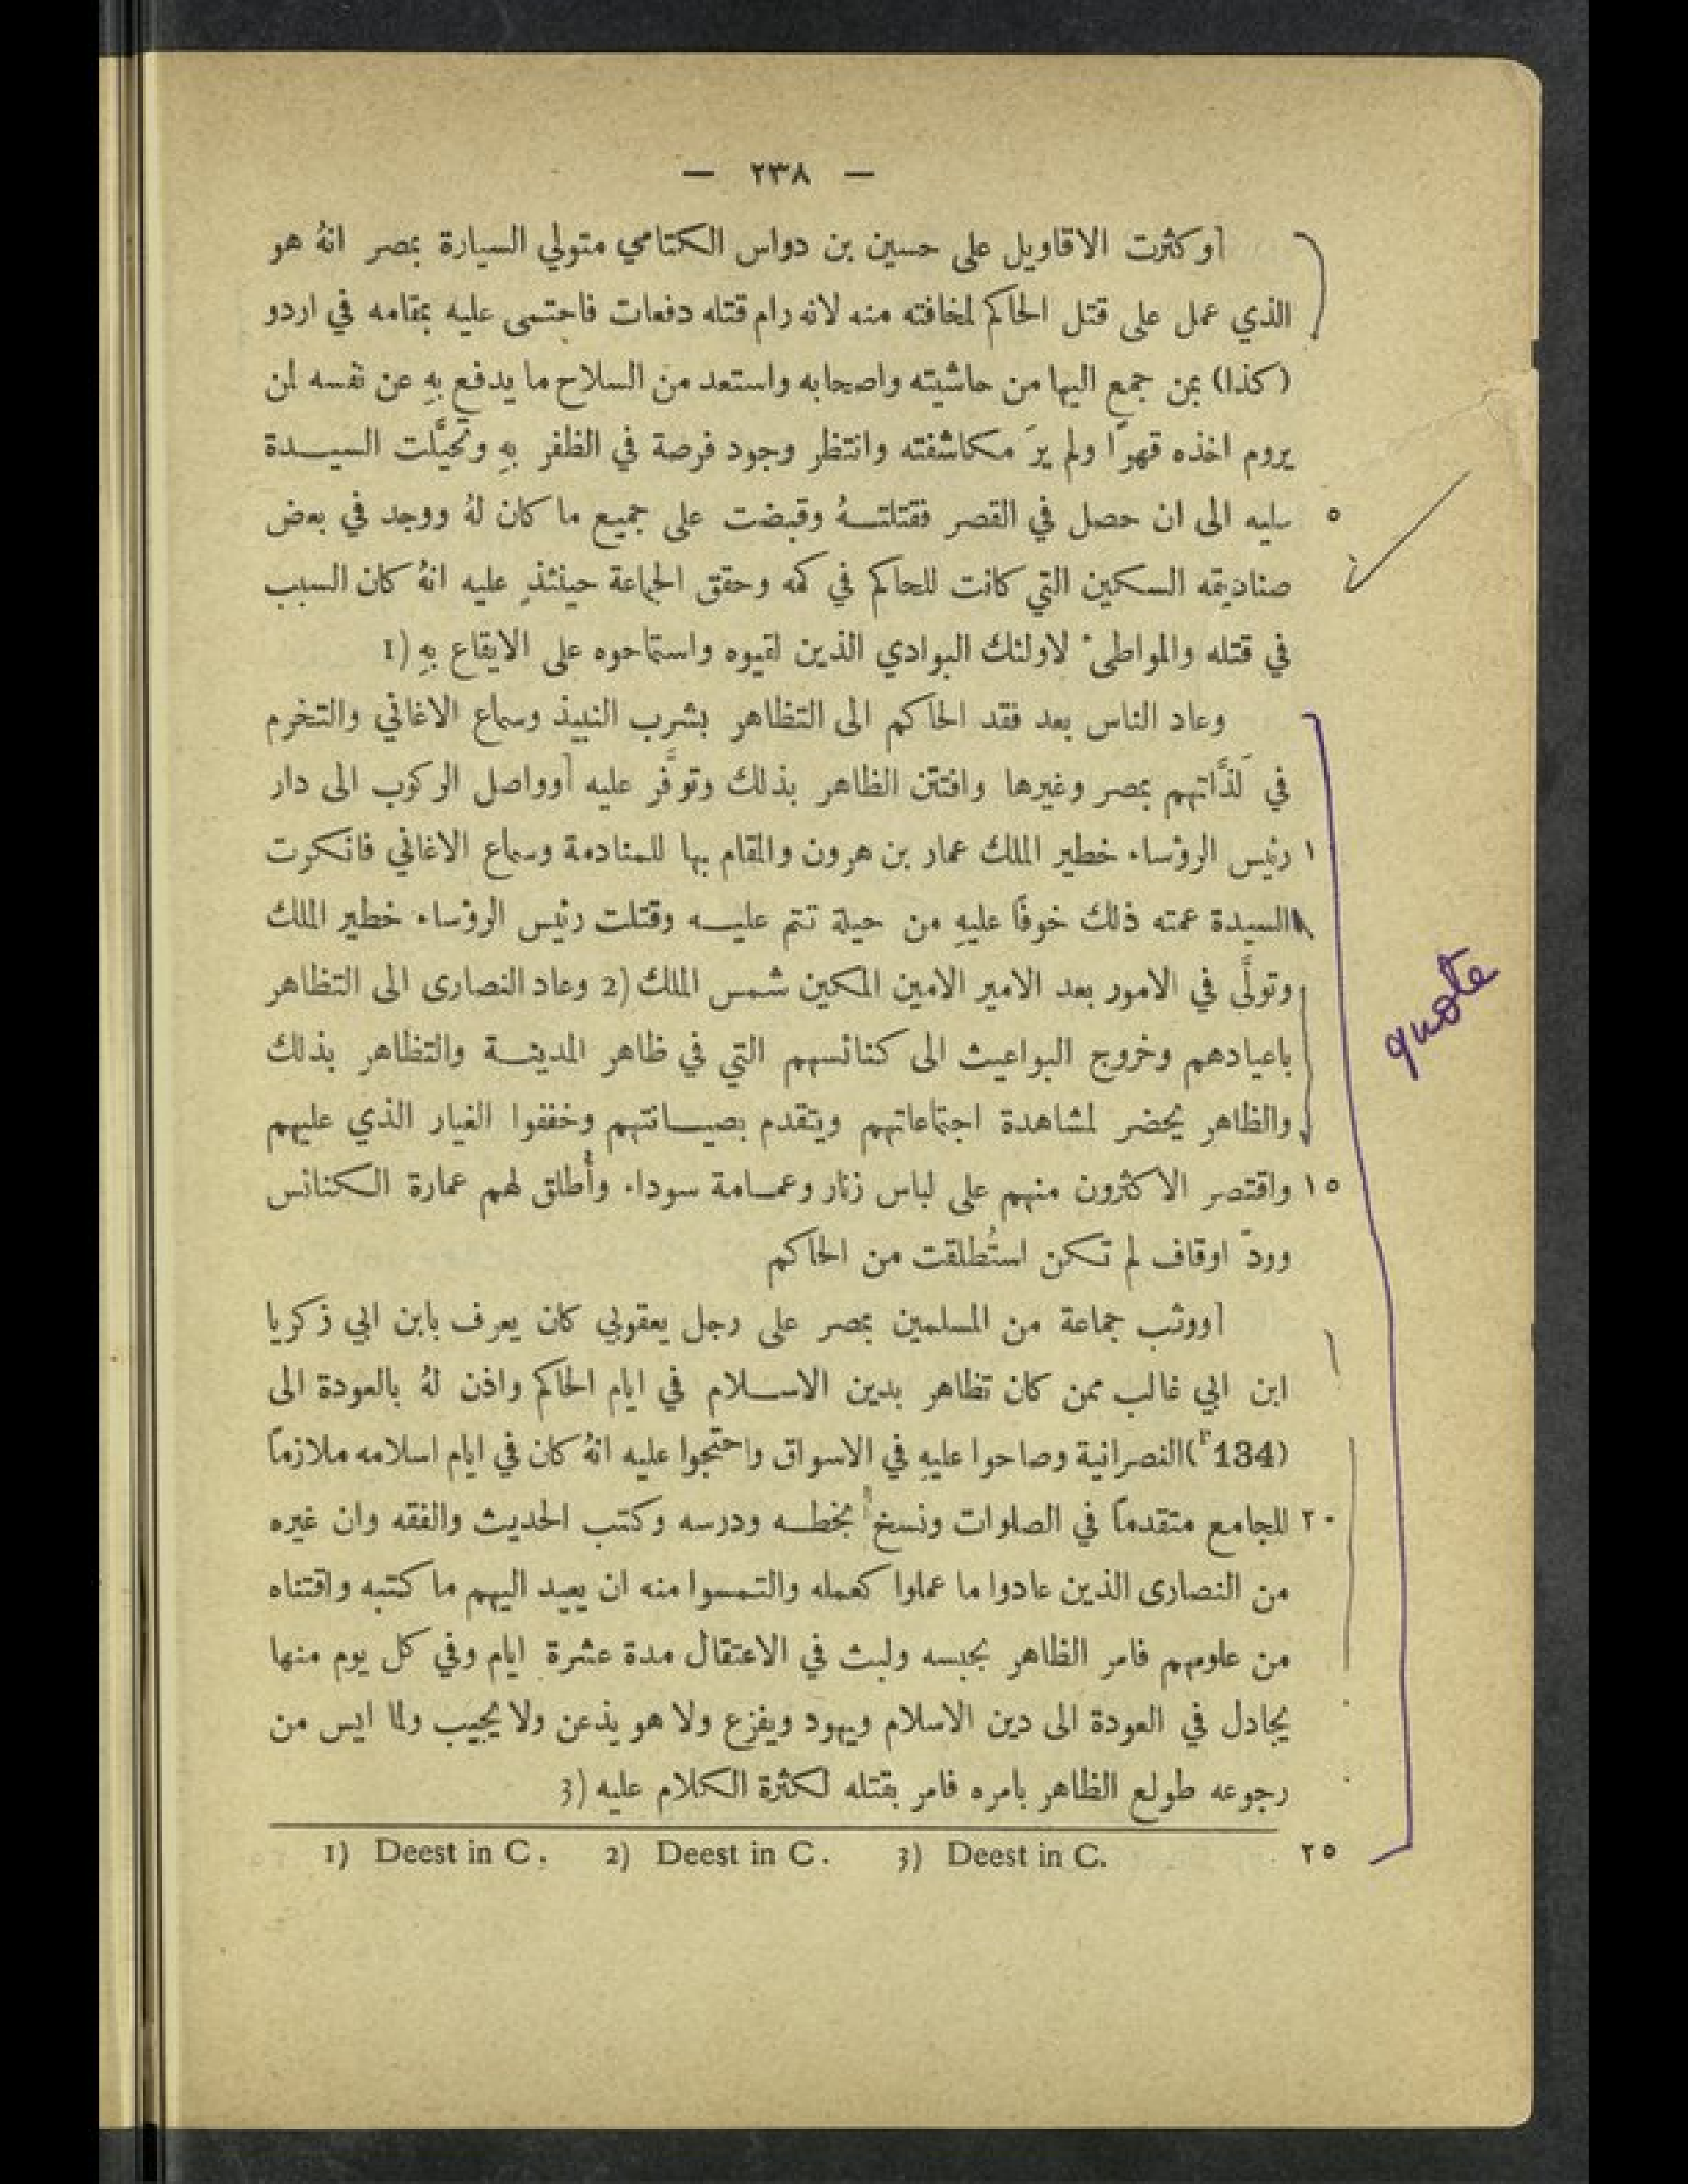 — ٢٣٨ —
[وكثرت الاقاويل على حسين بن دواس الكتامي متولي السيارة بمصر انهُ هو
الذي عمل على قتل الحاكم لمخافته منه لانه رام قتله دفعات فاحتمى عليه بمقامه في اردو
(كذا) بمن جمع اليها من حاشيته واصحابه واستعد من السلاح ما يدفع بهِ عن نفسه لمن
يروم اخذه قهرًا ولم يرَ مكاشفته وانتظر وجود فرصة في الظفر بهِ وتحيَّلت السيدة
٥ عليه الى ان حصل في القصر فقتلتهُ وقبضت على جميع ما كان لهُ ووجد في بعض
صناديقه السكين التي كانت للحاكم في كمه وحقق الجماعة حينئذٍ عليه انهُ كان السبب
في قتله والمواطئ لاولئك البوادي الذين لقيوه واستماحوه على الايقاع بهِ (1
وعاد الناس بعد فقد الحاكم الى التظاهر بشرب النبيذ وسماع الاغاني والتخرم
في لَذَّاتهم بمصر وغيرها وافتتن الظاهر بذلك وتوفَّر عليه [وواصل الركوب الى دار
١ رئيس الرؤساء خطير الملك عمار بن هرون والمقام بها للمنادمة وسماع الاغاني فانكرت
السيدة عمته ذلك خوفًا عليهِ من حيلة تتم عليه وقتلت رئيس الرؤساء خطير الملك
وتولَّى في الامور بعد الامير الامين المكين شمس الملك (2 وعاد النصارى الى التظاهر
باعيادهم وخروج البواعيث الى كنائسهم التي في ظاهر المدينة والتظاهر بذلك
والظاهر يحضر لمشاهدة اجتماعاتهم ويتقدم بصيانتهم وخففوا الغيار الذي عليهم
١٥ واقتصر الاكثرون منهم على لباس زنار وعمامة سوداء وأُطلق لهم عمارة الكنائس
وردّ اوقاف لم تكن استُطلقت من الحاكم
[ووثب جماعة من المسلمين بمصر على رجل يعقوبي كان يعرف بابن ابي زكريا
ابن ابي غالب ممن كان تظاهر بدين الاسلام في ايام الحاكم واذن لهُ بالعودة الى
(134r) النصرانية وصاحوا عليهِ في الاسواق واحتجوا عليه انهُ كان في ايام اسلامه ملازمًا
٢٠ للجامع متقدمًا في الصلوات ونسخ بخطه ودرسه وكتب الحديث والفقه وان غيره
من النصارى الذين عادوا ما عملوا كعمله والتمسوا منه ان يعيد اليهم ما كتبه واقتناه
من علومهم فامر الظاهر بحبسه ولبث في الاعتقال مدة عشرة ايام وفي كل يوم منها
يجادل في العودة الى دين الاسلام ويهود ويفزع ولا هو يذعن ولا يجيب ولما ايس من
رجوعه طولع الظاهر بامره فامر بقتله لكثرة الكلام عليه (3
1) Deest in C. 2) Deest in C. 3) Deest in C. ٢٥
quote